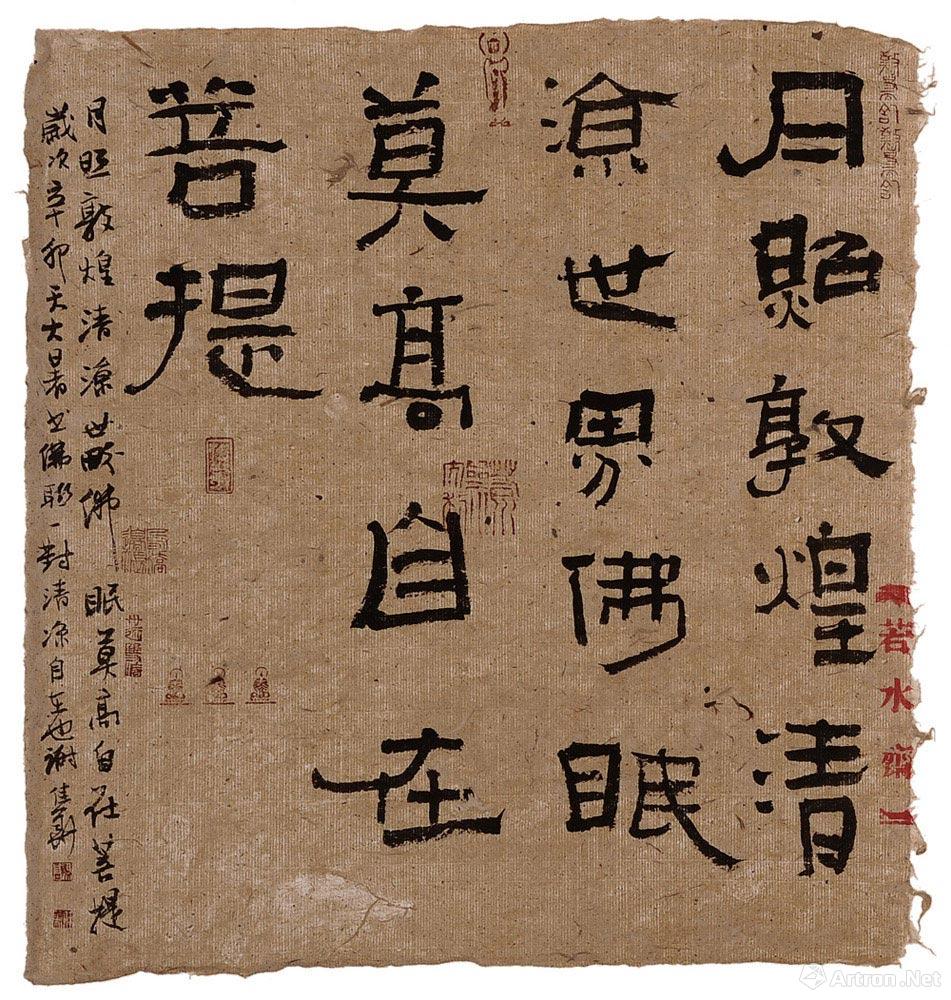 月照敦煌清
涼世界佛眠
莫高自在
菩提
月照敦煌清涼世畍佛眠莫高自在菩提
歲次辛卯天大暑书佛聯一對清涼自在也謝
若水齋
Artron.Net